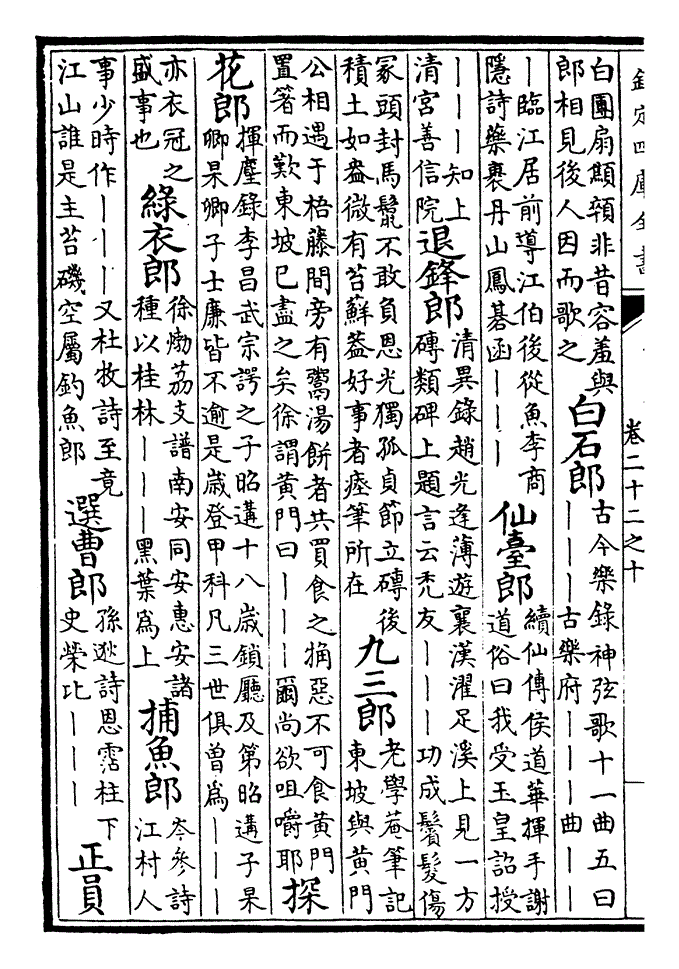 欽定四庫全書
卷二十二之十
白團扇顦顇非昔容羞與
郎相見後人因而歌之
白石郎
古今樂錄神弦歌十一曲五曰
｜｜｜古樂府｜｜｜曲｜｜
｜臨江居前導江伯後從魚李商
隱詩藥裹丹山鳳碁函｜｜｜
仙臺郎
續仙傳侯道華揮手謝
道俗曰我受玉皇詔授
｜｜｜知上
清宮善信院
退鋒郎
清異錄趙光逢薄遊襄漢濯足溪上見一方
磚類碑上題言云禿友｜｜｜功成鬢髮傷
冢頭封馬鬛不敢負恩光獨孤貞節立磚後
積土如盎微有苔蘚葢好事者瘞筆所在
九三郎
老學菴筆記
東坡與黃門
公相遇于梧藤間旁有鬻湯餅者共買食之觕惡不可食黃門
置箸而歎東坡已盡之矣徐謂黃門曰｜｜｜爾尚欲咀嚼耶
探
花郎
揮麈錄李昌武宗諤之子昭遘十八嵗鎖廳及第昭遘子杲
卿杲卿子士廉皆不逾是嵗登甲科凡三世俱曾為｜｜｜
亦衣冠之
盛事也
綠衣郎
徐㶿荔支譜南安同安惠安諸
種以桂林｜｜｜黑葉為上
捕魚郎
岑參詩
江村人
事少時作｜｜｜又杜牧詩至竟
江山誰是主苔磯空屬釣魚郎
選曹郎
孫逖詩恩霑柱下
史榮比｜｜｜
正員